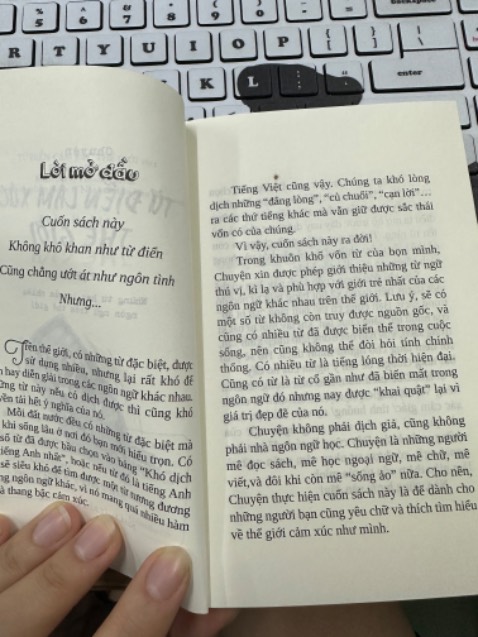 %
5
^
6
&
7
*
8
(
9
)
0
backspace
R
T
Y
U
I
O
P
{
[
}
]
|
\
K
L
:
;
"
enter
Lời mở đầu
Cuốn sách này
Không khô khan như từ điển
Cũng chẳng ướt át như ngôn tình
Nhưng...
Trên thế giới, có những từ đặc biệt, được
sử dụng nhiều, nhưng lại rất khó để
hay diễn giải trong các ngôn ngữ khác nhau.
từ này nếu có dịch được thì cũng khó
tải hết ý nghĩa của nó.
Mỗi đất nước đều có những từ đặc biệt mà
khi sống lâu ở nơi đó bạn mới hiểu trọn. Có
số từ đã được bầu chọn vào bảng “Khó dịch
tiếng Anh nhất”, hoặc nếu từ đó là tiếng Anh
sẽ siêu khó để tìm được một từ tương đương
ngôn ngữ khác, vì nó mang quá nhiều hàm
thang bậc cảm xúc.
Tiếng Việt cũng vậy. Chúng ta khó lòng
dịch những “đắng lòng”, “củ chuối”, “cạn lời”...
ra các thứ tiếng khác mà vẫn giữ được sắc thái
vốn có của chúng.
Vì vậy, cuốn sách này ra đời!
Trong khuôn khổ vốn từ của bọn mình,
Chuyện xin được phép giới thiệu những từ ngữ
thú vị, kì lạ và phù hợp với giới trẻ nhất của các
ngôn ngữ khác nhau trên thế giới. Lưu ý, sẽ có
một số từ không còn truy được nguồn gốc, và
cũng có nhiều từ đã được biến thể trong cuộc
sống, nên cũng không thể đòi hỏi tính chính
thống. Có nhiều từ là tiếng lóng thời hiện đại.
Cũng có từ là từ cổ gần như đã biến mất trong
ngôn ngữ đó nhưng nay được “khai quật” lại vì
giá trị đẹp đẽ của nó.
Chuyện không phải dịch giả, cũng không
phải nhà ngôn ngữ học. Chuyện là những người
mê đọc sách, mê học ngoại ngữ, mê chữ, mê
viết,và đôi khi còn mê “sống ảo” nữa. Cho nên,
Chuyện thực hiện cuốn sách này là để dành cho
những người bạn cũng yêu chữ và thích tìm hiểu
về thế giới cảm xúc như mình.